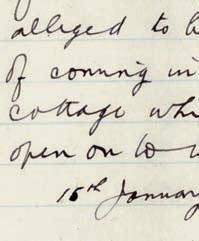 alleged to b
of coming in
cottage wh
open on to
15th January